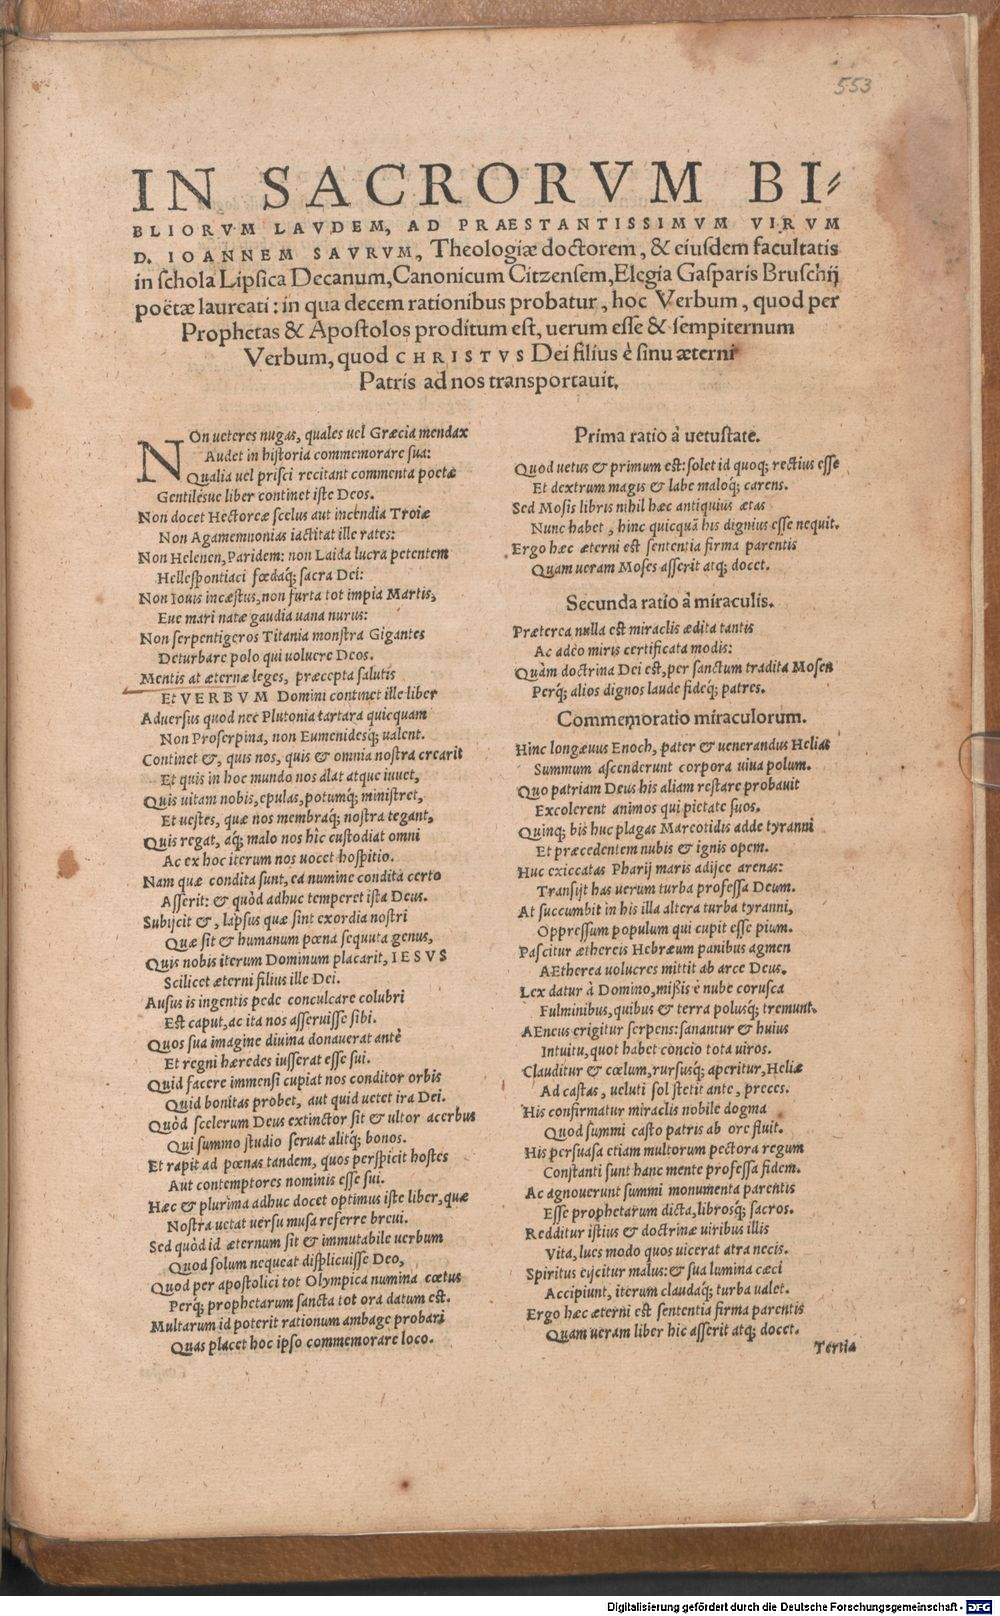 553
IN SACRORVM BI⸗
BLIORVM LAVDEM, AD PRAESTANTISSIMVM VIRVM
D. IOANNEM SAVRVM, Theologiæ doctorem, & eiusdem facultatis
in schola Lipsica Decanum, Canonicum Citzensem, Elegia Gasparis Bruschij
poëtæ laureati: in qua decem rationibus probatur, hoc Verbum, quod per
Prophetas & Apostolos proditum est, uerum esse & sempiternum
Verbum, quod CHRISTVS Dei filius è sinu æterni
Patris ad nos transportauit.
NOn ueteres nugas, quales uel Græcia mendax
Audet in historia commemorare sua:
Qualia uel prisci recitant commenta poetæ
Gentilésue liber continet iste Deos.
Non docet Hectoreæ scelus aut incendia Troiæ
Non Agamemnonias iactitat ille rates:
Non Helenen, Paridem: non Laida lucra petentem
Hellespontiaci fœdaq́; sacra Dei:
Non Iouis incæstus, non furta tot impia Martis,
Eue mari natæ gaudia uana nurus:
Non serpentigeros Titania monstra Gigantes
Deturbare polo qui uoluere Deos.
Mentis at æternæ leges, præcepta salutis
Et VERBVM Domini continet ille liber
Aduersus quod nec Plutonia tartara quicquam
Non Proserpina, non Eumenidesq; ualent.
Continet &, quis nos, quis & omnia nostra crearit
Et quis in hoc mundo nos alat atque iuuet,
Quis uitam nobis, epulas, potumq́; ministret,
Et uestes, quæ nos membraq́; nostra tegant,
Quis regat, aq́; malo nos hîc custodiat omni
Ac ex hoc iterum nos uocet hospitio.
Nam quæ condita sunt, ea numine condita certo
Asserit: & quòd adhuc temperet ista Deus.
Subijcit &, lapsus quæ sint exordia nostri
Quæ sit & humanum pœna sequuta genus,
Quis nobis iterum Dominum placarit, IESVS
Scilicet æterni filius ille Dei.
Ausus is ingentis pede conculcare colubri
Est caput, ac ita nos asseruisse sibi.
Quos sua imagine diuina donauerat antè
Et regni hæredes iusserat esse sui.
Quid facere immensi cupiat nos conditor orbis
Quid bonitas probet, aut quid uetet ira Dei.
Quòd scelerum Deus extinctor sit & ultor acerbus
Qui summo studio seruat alitq́; bonos.
Et rapit ad pœnas tandem, quos perspicit hostes
Aut contemptores nominis esse sui.
Hæc & plurima adhuc docet optimus iste liber, quæ
Nostra uetat uersu musa referre breui.
Sed quòd id æternum sit & immutabile uerbum
Quod solum nequeat displicuisse Deo,
Quod per apostolici tot Olympica numina cœtus
Perq́; prophetarum sancta tot ora datum est.
Multarum id poterit rationum ambage probari
Quas placet hoc ipso commemorare loco.
Prima ratio à uetustate.
Quod uetus & primum est: solet id quoq; rectius esse
Et dextrum magis & labe maloq́; carens.
Sed Mosis libris nihil hæc antiquius ætas
Nunc habet, hinc quicquã his dignius esse nequit.
Ergo hæc æterni est sententia firma parentis
Quam ueram Moses asserit atq; docet.
Secunda ratio à miraculis.
Præterea nulla est miraclis ædita tantis
Ac adeò miris certificata modis:
Quàm doctrina Dei est, per sanctum tradita Mosen
Perq́; alios dignos laude fideq́; patres.
Commemoratio miraculorum.
Hinc longæuus Enoch, pater & uenerandus Helias
Summum ascenderunt corpora uiua polum.
Quo patriam Deus his aliam restare probauit
Excolerent animos qui pietate suos.
Quinq; bis huc plagas Mareotidis adde tyranni
Et præcedentem nubis & ignis opem.
Huc exiccatas Pharij maris adijce arenas:
Transijt has uerum turba professa Deum.
At succumbit in his illa altera turba tyranni,
Oppressum populum qui cupit esse pium.
Pascitur æthereis Hebræum panibus agmen
AEtherea uolucres mittit ab arce Deus.
Lex datur à Domino, mißis è nube corusca
Fulminibus, quibus & terra polusq́; tremunt.
AEneus erigitur serpens: sanantur & huius
Intuitu, quot habet concio tota uiros.
Clauditur & cœlum, rursusq́; aperitur, Heliæ
Ad castas, ueluti sol stetit ante, preces.
His confirmatur miraclis nobile dogma
Quod summi casto patris ab ore fluit.
His persuasa etiam multorum pectora regum
Constanti sunt hanc mente professa fidem.
Ac agnouerunt summi monumenta parentis
Esse prophetarum dicta, librosq́; sacros.
Redditur istius & doctrinæ uiribus illis
Vita, lues modo quos uicerat atra necis.
Spiritus eijcitur malus: & sua lumina cæci
Accipiunt, iterum claudaq́; turba ualet.
Ergo hæc æterni est sententia firma parentis
Quam ueram liber hic asserit atq; docet.
Tertia
Digitalisierung gefördert durch die Deutsche Forschungsgemeinschaft - DFG